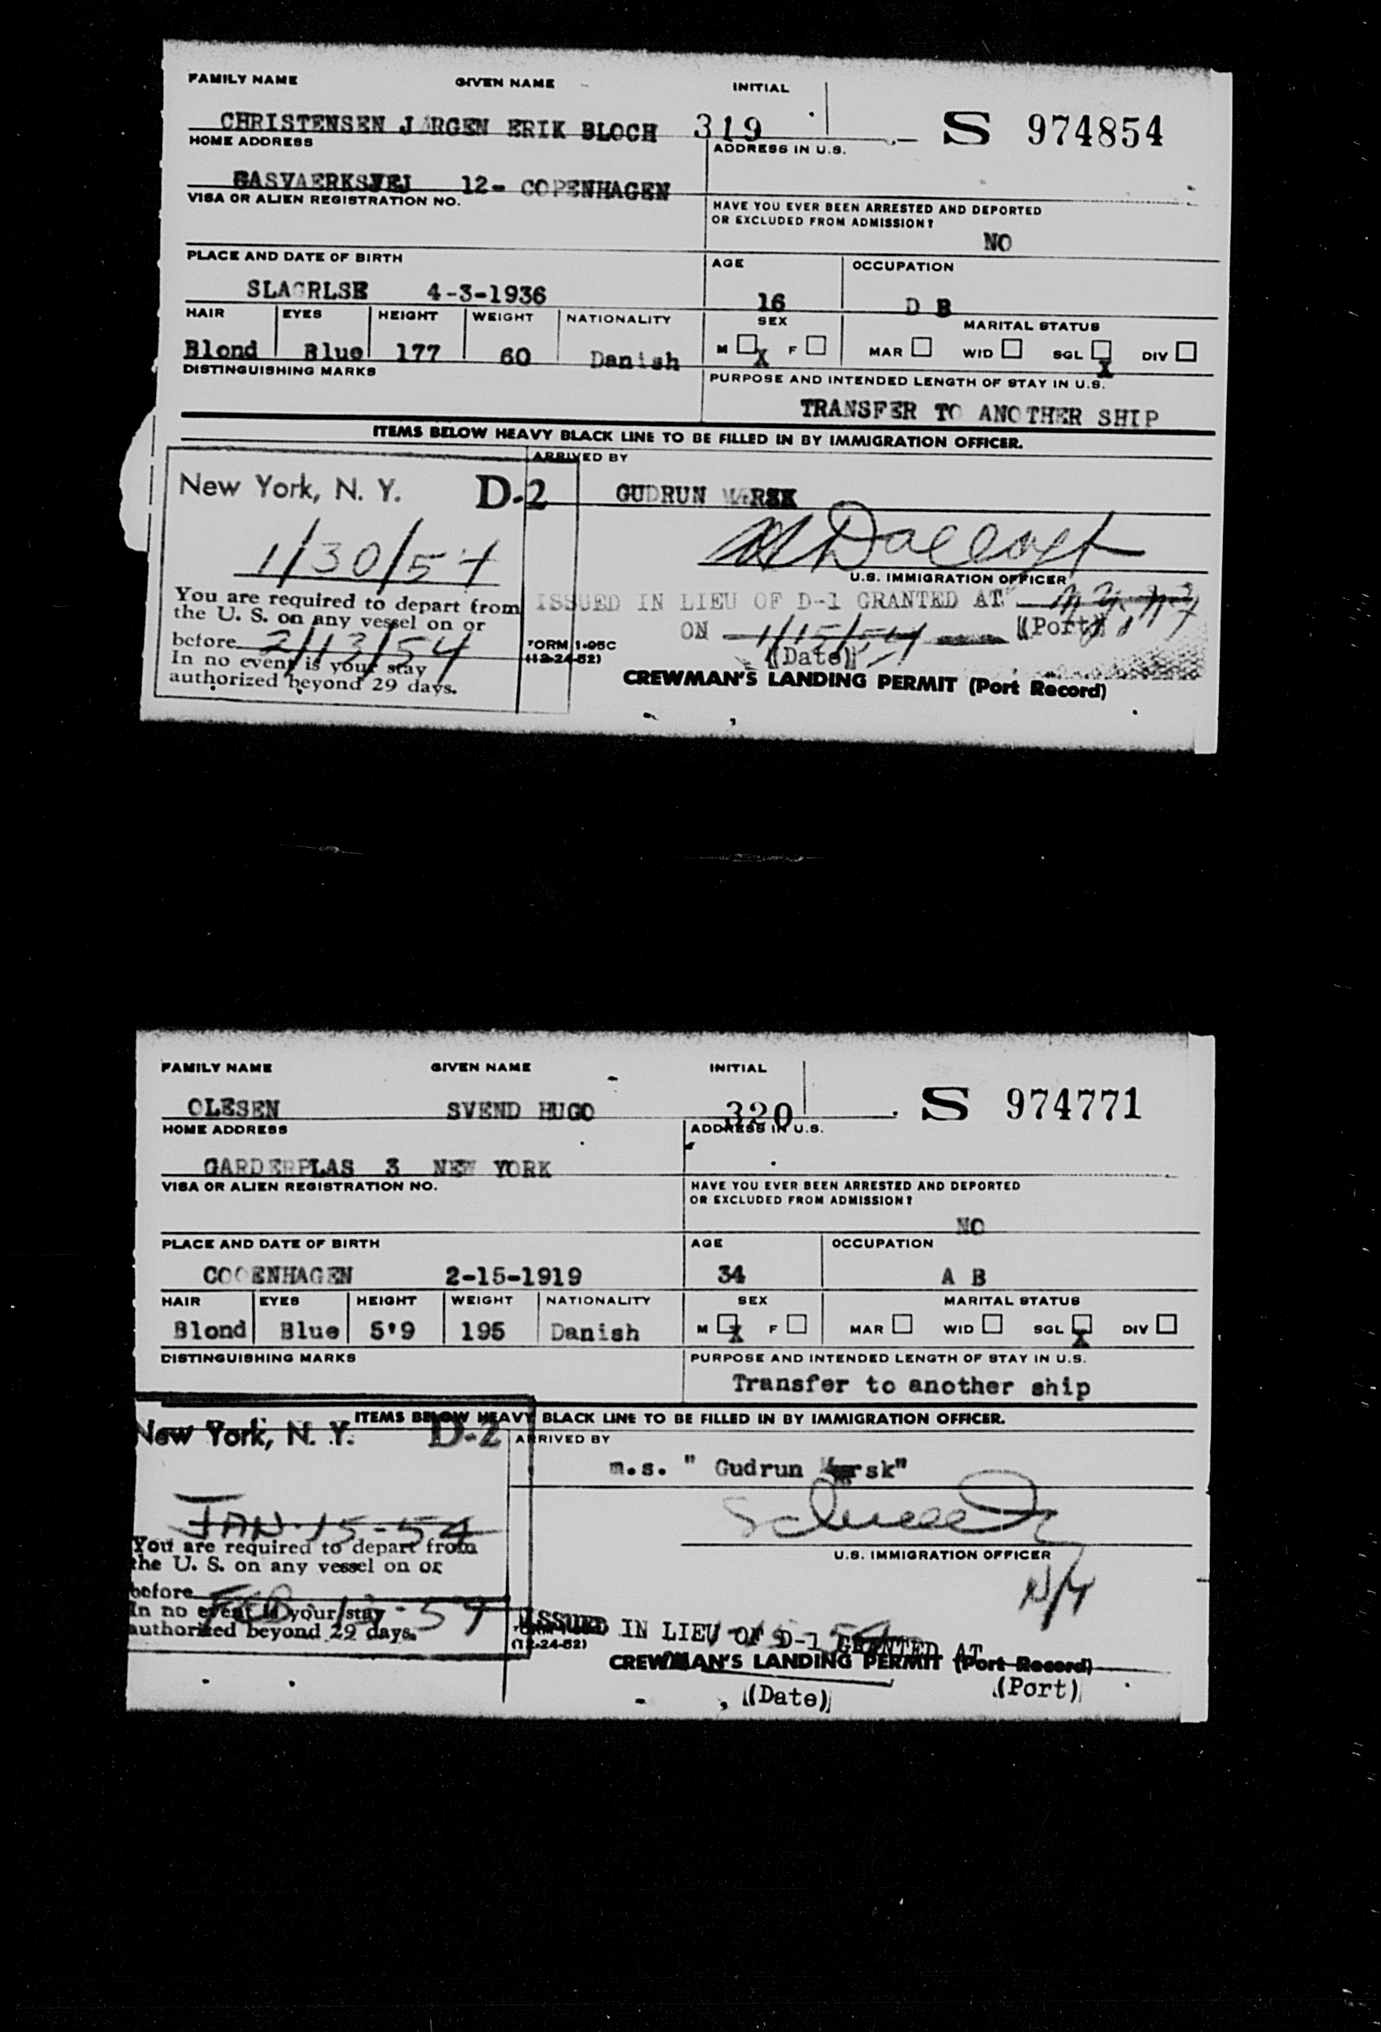 FAMILY NAME GIVEN NAME INITIAL
CHRISTENSEN JØRGEN ERIK BLOCH 319 S 974854
HOME ADDRESS ADDRESS IN U.S.
GASVAERKSVEJ 12- COPENHAGEN
VISA OR ALIEN REGISTRATION NO. HAVE YOU EVER BEEN ARRESTED AND DEPORTED
OR EXCLUDED FROM ADMISSION?
NO
PLACE AND DATE OF BIRTH AGE OCCUPATION
4-3-1936 16 D B
HAIR EYES HEIGHT WEIGHT NATIONALITY SEX MARITAL STATUS
Blond Blue 177 60 Danish M X F MAR WID SGL X DIV
DISTINGUISHING MARKS PURPOSE AND INTENDED LENGTH OF STAY IN U.S.
TRANSFER TO ANOTHER SHIP
ITEMS BELOW HEAVY BLACK LINE TO BE FILLED IN BY IMMIGRATION OFFICER.
ARRIVED BY
New York, N. Y. D-2 GUDRUN MÆRSK
1/30/54
U.S. IMMIGRATION OFFICER
You are required to depart from ISSUED IN LIEU OF D-1 GRANTED AT
the U. S. on any vessel on or ON 1/15/54 (Port)
before 2/13/54 FORM 1-95C (Date)
In no event is your stay (12-24-52)
authorized beyond 29 days. CREWMAN'S LANDING PERMIT (Port Record)
FAMILY NAME GIVEN NAME INITIAL
OLESEN SVEND HUGO 320 S 974771
HOME ADDRESS ADDRESS IN U.S.
GARDERPLAS 3 NEW YORK
VISA OR ALIEN REGISTRATION NO. HAVE YOU EVER BEEN ARRESTED AND DEPORTED
OR EXCLUDED FROM ADMISSION?
NO
PLACE AND DATE OF BIRTH AGE OCCUPATION
COOENHAGEN 2-15-1919 34 A B
HAIR EYES HEIGHT WEIGHT NATIONALITY SEX MARITAL STATUS
Blond Blue 5'9 195 Danish M X F MAR WID SGL X DIV
DISTINGUISHING MARKS PURPOSE AND INTENDED LENGTH OF STAY IN U.S.
Transfer to another ship
ITEMS BELOW HEAVY BLACK LINE TO BE FILLED IN BY IMMIGRATION OFFICER.
New York, N. Y. D-2 ARRIVED BY
m.s. " Gudrun Mærsk"
JAN-15-54
You are required to depart from
the U. S. on any vessel on or U.S. IMMIGRATION OFFICER
before N/Y
In no event is your stay ISSUED IN LIEU OF D-1 GRANTED AT
authorized beyond 29 days. (12-24-52)
CREWMAN'S LANDING PERMIT (Port Record)
(Date) (Port)